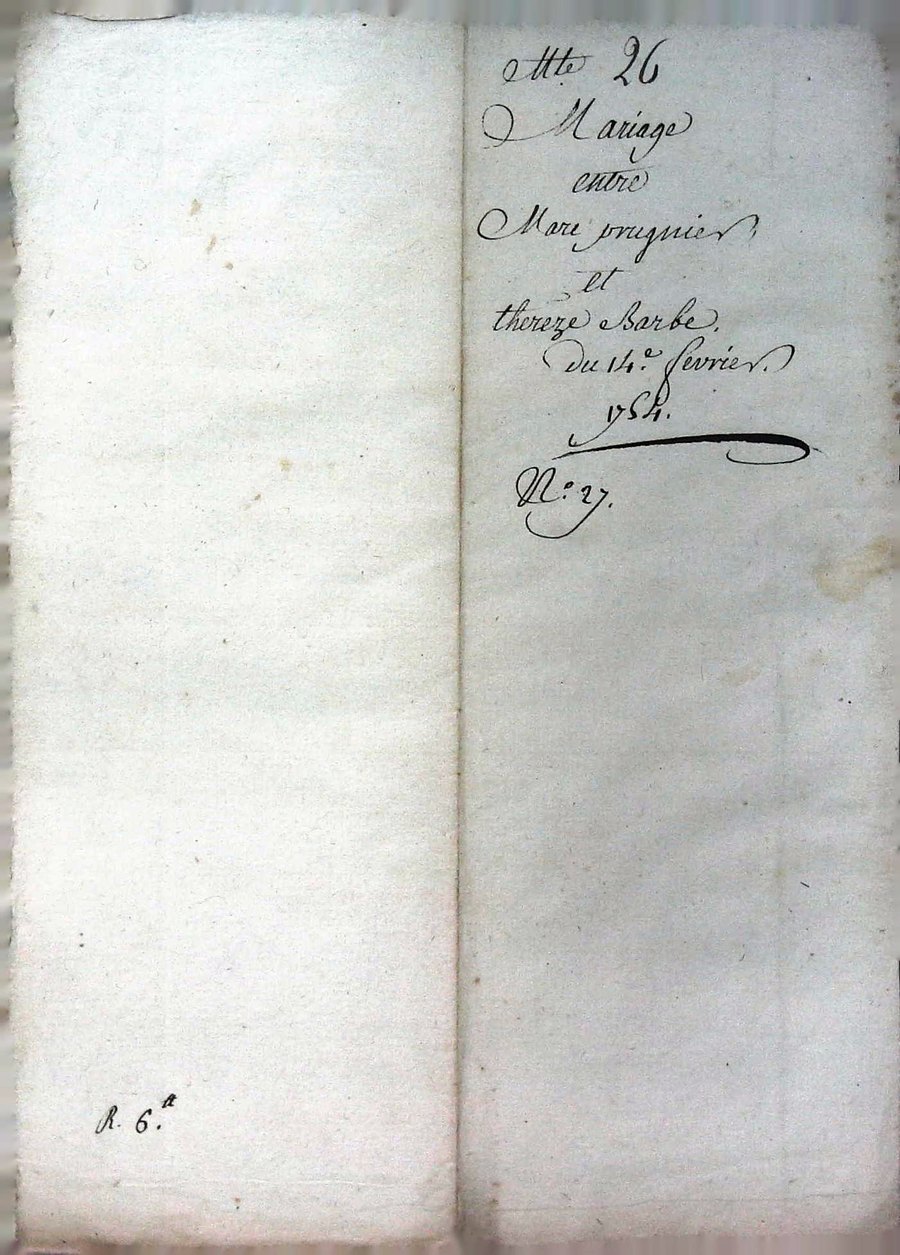 Mte 26
Mariage
entre
Marc prugnier
et
thereze Barbe.
du 14.e fevrier.
1754.
N.o 27.
R. 6.a